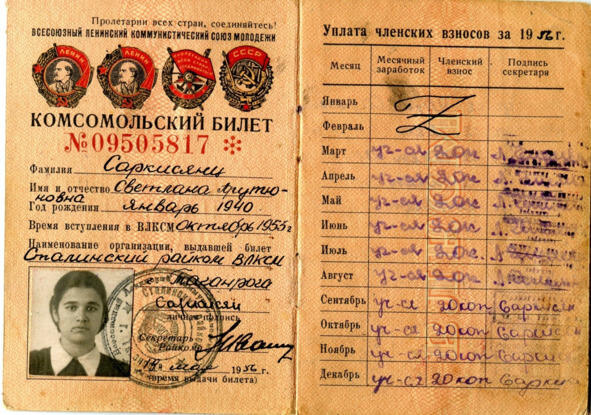 Пролетарии всех стран, соединяйтесь!
ВСЕСОЮЗНЫЙ ЛЕНИНСКИЙ КОММУНИСТИЧЕСКИЙ СОЮЗ МОЛОДЕЖИ
ЛЕНИН ЛЕНИН СССР
КОМСОМОЛЬСКИЙ БИЛЕТ
№ 09505817 *
Фамилия Саркисянц
Имя и отчество Светлана Арутю-
новна
Год рождения январь 1940
Время вступления в ВЛКСМ октябрь 1955г
Наименование организации, выдавшей билет
Сталинский райком ВЛКСМ
Таганрога
личная подпись
Секретарь
Райкома
мая 1956 г.
(время выдачи билета)
Уплата членских взносов за 1956 г.
Месяц Месячный заработок Членский взнос Подпись секретаря
Январь
Февраль
Март уч-ся 20к
Апрель уч-ся 20к
Май уч-ся 20к
Июнь уч-ся 20к
Июль уч-ся 20к
Август уч-ся 20к
Сентябрь уч-ся 20коп
Октябрь уч-ся 20коп
Ноябрь уч-ся 20коп
Декабрь уч-ся 20коп